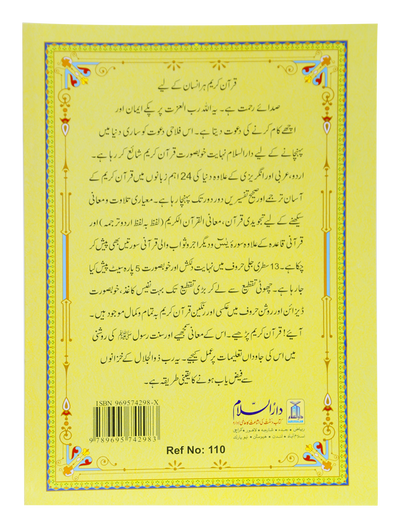 قرآن کریم ہر انسان کے لیے
صدائے رحمت ہے۔ یہ اللہ رب العزت پر پکے ایمان اور
اچھے کام کرنے کی دعوت دیتا ہے۔ اس فلاحی دعوت کو ساری دنیا میں
پہنچانے کے لیے دارالسلام نہایت خوبصورت قرآن کریم شائع کر رہا ہے۔
اردو، عربی اور انگریزی کے علاوہ دنیا کی 24 اہم زبانوں میں قرآن کریم کے
آسان ترجمے اور صحیح تفسیریں دور دور تک پہنچا رہا ہے۔ معیاری تلاوت و معانی
سیکھنے کے لیے تجویدی قرآن، معانی القرآن الکریم (لفظ بہ لفظ اردو ترجمہ) اور
قرآنی قاعدہ کے علاوہ سورۂ یٰسٓ و دیگر اجر و ثواب والی قرآنی سورتیں بھی پیش کر
چکا ہے۔ 13 سطری جلی حروف میں نہایت دلکش اور خوبصورت 5 پارہ سیٹ پیش کیا
جا رہا ہے۔ چھوٹی تقطیع سے لے کر بڑی تقطیع تک بہت نفیس کاغذ، خوبصورت
ڈیزائن اور روشن حروف میں عکسی اور رنگین قرآن کریم بہ تمام و کمال موجود ہیں۔
آیئے! قرآن کریم پڑھیے۔ اس کے معانی سمجھیے اور سنت رسول ﷺ کی روشنی
میں اس کی جاوداں تعلیمات پر عمل کیجیے۔ یہ رب ذوالجلال کے خزانوں
سے فیض یاب ہونے کا یقینی طریقہ ہے۔
ISBN 969574298-X
9 789695 742983
دارالسلام
Ref No: 110